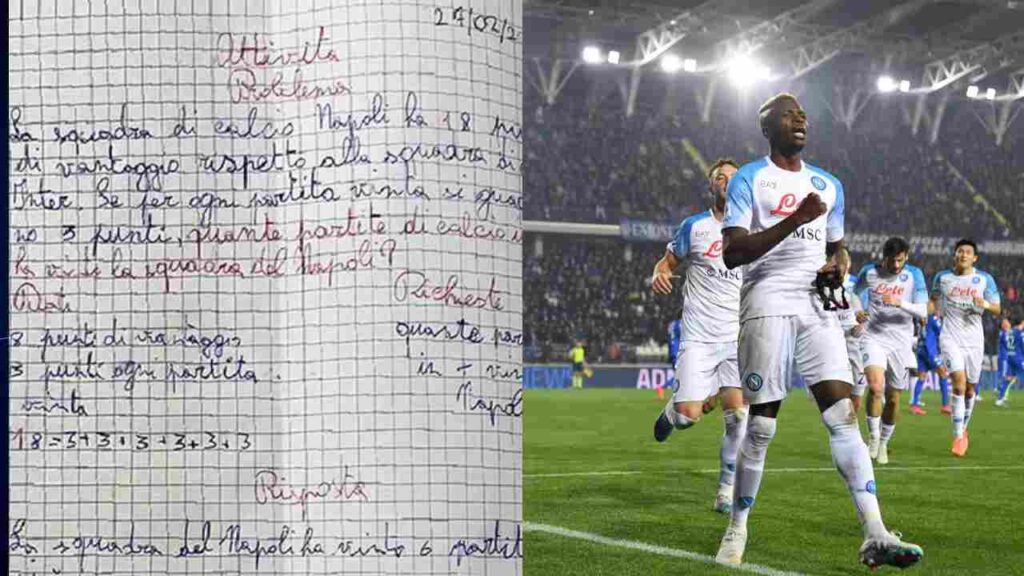 27/02/2
Attività
Problema
La squadra di calcio Napoli ha 18 pu
di vantaggio rispetto alla squadra di
Inter. Se per ogni partita vinta si guad
no 3 punti, quante partite di calcio i
ha vinto la squadra del Napoli?
Dati
Richieste
8 punti di vantaggio
quante par
3 punti ogni partita.
in + vin
vinta
Napol
18=3+3+3+3+3+3
Risposta
La squadra del Napoli ha vinto 6 partit
EA7
Lete
MSC
EA7
Lete
MSC
Lete
Lete